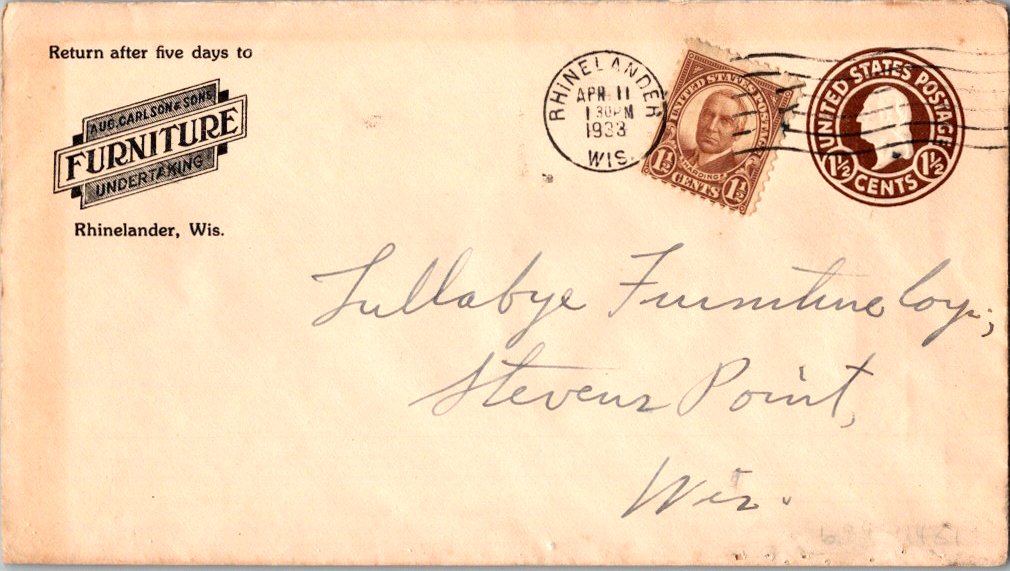 Return after five days to
AUG. CARLSON & SONS
FURNITURE
UNDERTAKING
Rhinelander, Wis.
RHINELANDER
APR 11
1 30 PM
1933
WIS.
UNITED STATES POSTAGE
HARDING
1½ CENTS 1½
UNITED STATES POSTAGE
1½ CENTS 1½
Lullabye Furniture Corp.,
Stevens Point,
Wis.